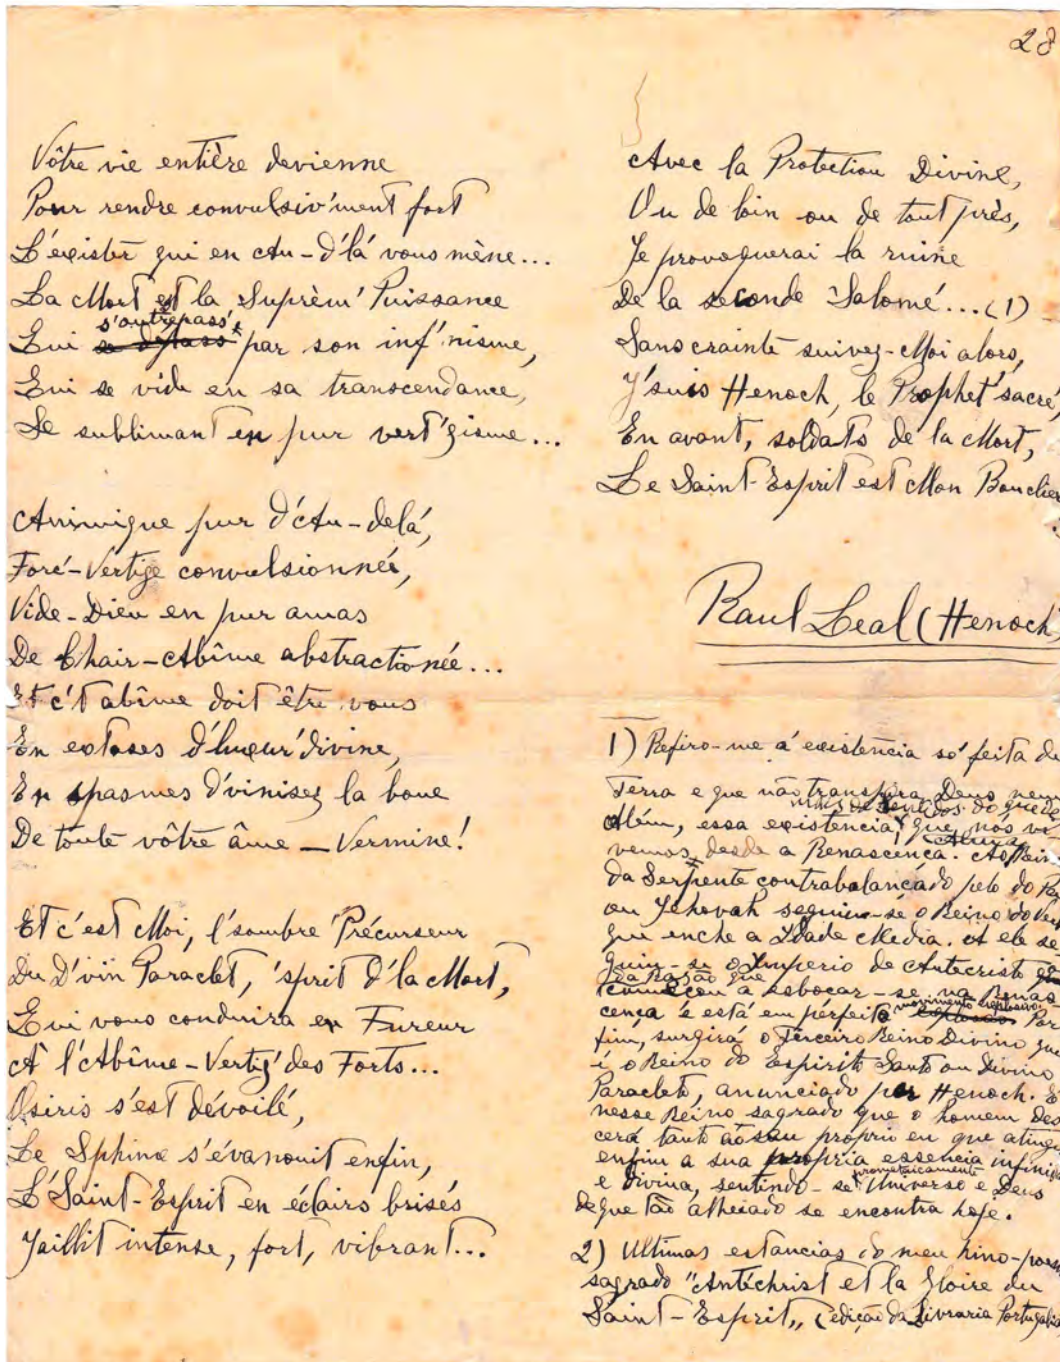 28
Vôtre vie entière devienne
Pour rendre convulsiv'ment fort
L'exister qui en Au-d'là vous mène...
La Mort est la Suprèm' Puissance
s'outrepass'
Qui se dépass' par son inf'nisme,
Qui se vide en sa transcendance,
Se sublimant en pur vert'gisme...
Animique pur d'Au-delà,
Foré-Vertige convulsionnée,
Vide-Dieu en pur amas
De Chair-Abîme abstractionée...
Et c't abîme doit être vous
En extases d'lueur divine,
En spasmes d'vinisez la boue
De toute vôtre âme — Vermine!
Et c'est Moi, l'sombre Précurseur
Du D'vin Paraclet, 'sprit d'la Mort,
Qui vous conduira en Fureur
A l'Abîme-Vertig' des Forts...
Osiris s'est dévoilé,
Le Sphinx s'évanouit enfin,
L'Saint-Esprit en éclairs brisés
Jaillit intense, fort, vibrant...
Avec la Protection Divine,
Ou de loin ou de tout près,
Je provoquerai la ruine
De la seconde Salomé...(1)
Sans crainte suivez-Moi alors,
J'suis Henoch, le Prophet' sacré,
En avant, soldats de la Mort,
Le Saint-Esprit est Mon Bouclier
Raul Leal (Henoch)
1) Refiro-me á existencia só feita de
Terra e que não transpira Deus nem
mais de sentidos do que de
Além, essa existencia que nós vi
Alma
vemos desde a Renascença. Ao Rein
da Serpente contrabalançado pelo do Pa
ou Jehovah seguiu-se o Reino do Ver
que enche a Idade Media. A ele se-
guiu-se o Imperio de Antecristo
da Razão que
começou a esboçar-se na Renas-
movimento explosivo.
cença e está em perfeito explosão Por
fim, surgirá o Terceiro Reino Divino que
é o Reino do Espirito Santo ou Divino
Paracleto, anunciado por Henoch. É
nesse Reino sagrado que o homem des
cerá tanto ao seu proprio eu que atingi
enfim a sua propria essencia infinita
prometaicamente
e divina, sentindo-se Universo e Deus
de que tão alheiado se encontra hoje.
2) Ultimas estancias do meu hino-poem
sagrado "Antéchrist et la Gloire du
Saint-Esprit" (edição da Livraria Portugalia